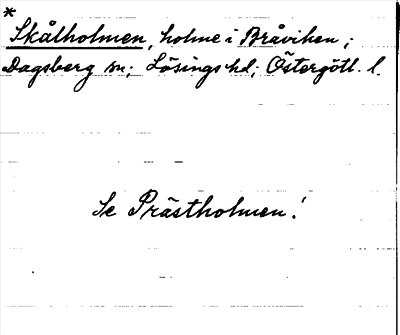 *
Skålholmen, holme i Bråviken;
Dagsberg sn; Lösings hd; Östergötl. l.
Se Prästholmen!